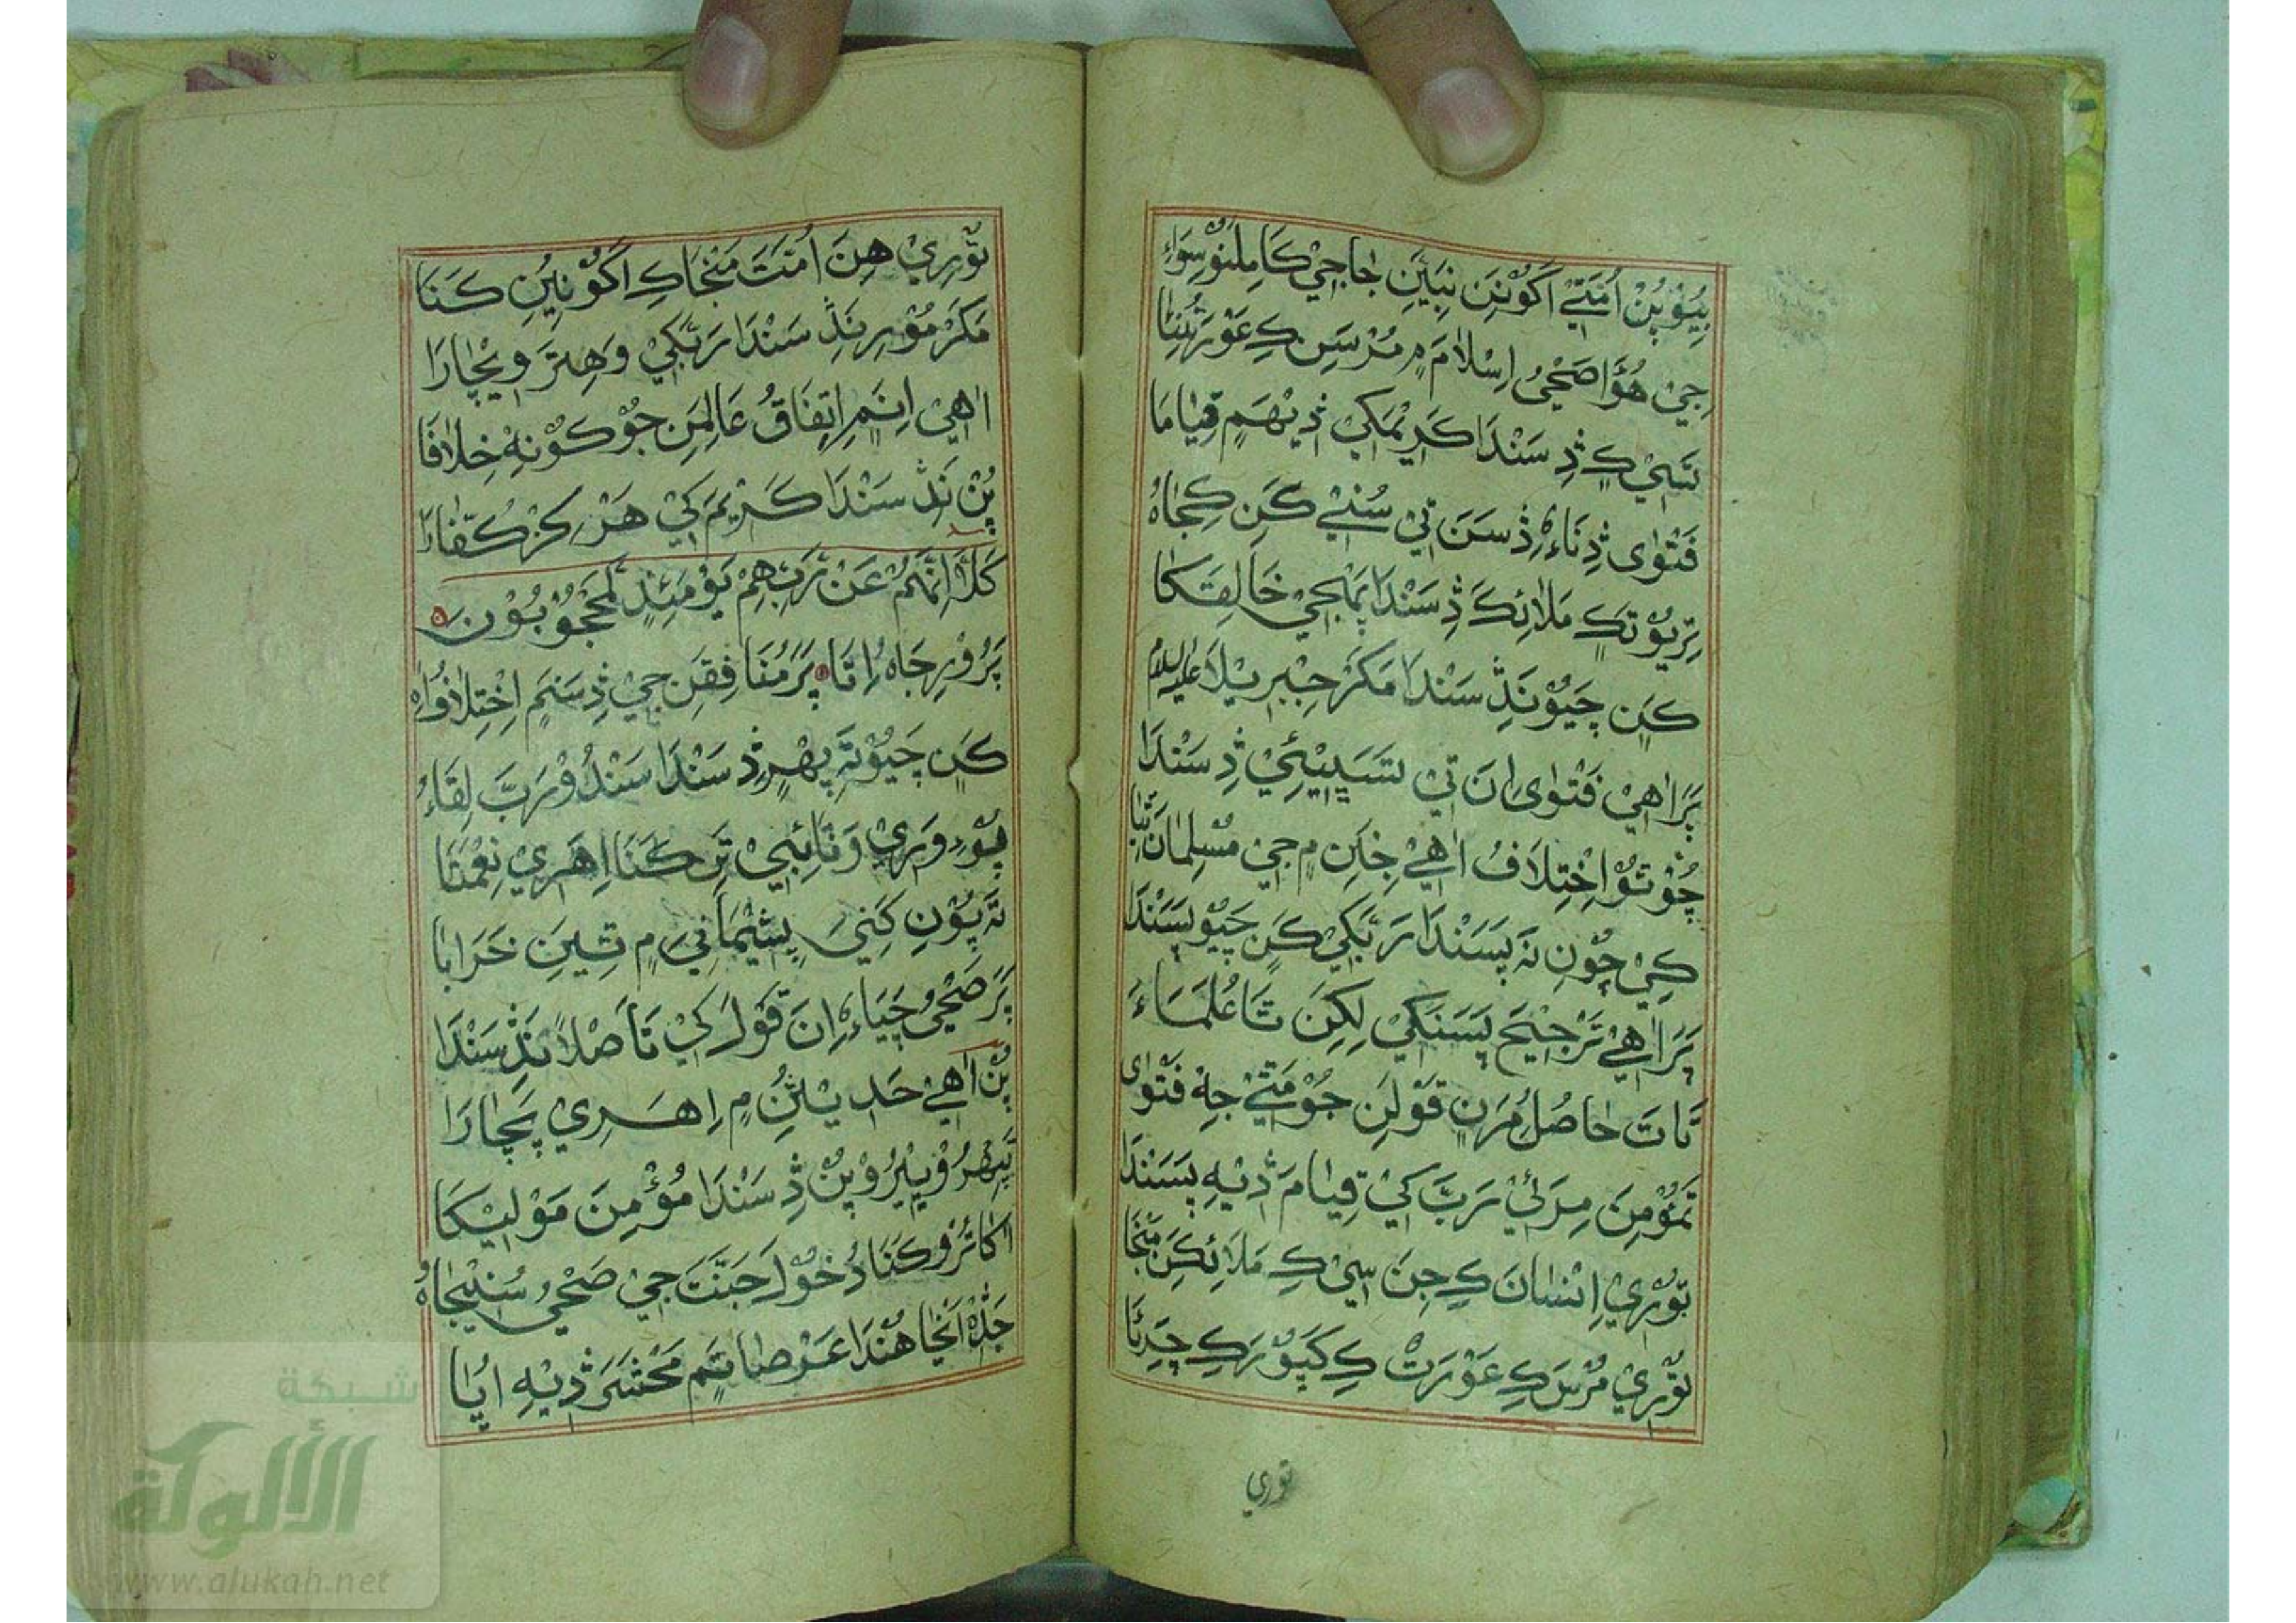 بِيُوْ پُنْ اُمَتِيْ اَڳُوْنِنِ نِبِيَّنِ جا جِيْ ڪَامِلُنِوُّ سِوَاءِ
جِيْ هُوَّا صَحِيُ اِسْلَامَ ۾ مُرْسَنِ ڪِ عَوْرَتُنِنَا
سَڀِيْ ڪِ ڏِ سَنْدَا ڪَرِيْمَڪِيْ ڏِيْنهَم قِيَامَا
فَتْوٰى ڏِنَاءِ ڏِسَنَ تِيْ سُنِّيْ ڪَنِ ڪِجَاهُ
تِرِيُوْتَڪِ مَلَائِڪَ ڏِ سَنْدَا پُهْجِيْ خَالِقَڪَا
ڪَنِ چَيُوْ نَڏِ سَنْدَا مَڪَرْ جِبْرِيْلَا عليه السلام
پَرَ اٰهِيْ فَتْوٰى اِنَ تِيْ سَڀِيْئِيْ ڏِ سَنْدَا
جُوْ تَوُ اِخْتِلَافُ اٰهِيْ جِنَّنِ ۾ جِيْ مُسْلِمَانَ ٿِيَا
ڪِيْ چَوَنِ نَہ پَسَنْدَا رَبَّڪِيْ ڪَنِ چَيُوْ پَسَنْدَا
پَرَ اٰهِيْ تَرْجِيْحَ پَسَنَڪِيْ لِڪِنَ تَا عُلَمَاءَ
تَاتَ حَاصُلُ مُرَنِ قَوْلَنِ جُوْ مَتِيْ جِہ فَتْوٰى
تَمُؤْمِنَ مِرَئِيْ رَبَّ ڪِيْ قِيَامَ ڏِيْہِ پَسَنْدَا
تَوُرِيْ اِنْسَانَ ڪِ جِنَ سِيْ ڪِ مَلَائِڪَنِ مَنْجَا
تَوُرِيْ مُرْسَ ڪِ عَوْرَتْ ڪِ ڪَپَوُرَ ڪِ چَرِئَا
توري
تَوُرِيْ هِنَ اُمَّتَ مَنْجَاڪِ اَڳُوْنِيُنِ ڪَنَا
مَڪَرْ مُوْرِ نَڏِ سَنْدَا رَبَّڪِيْ وَهِتَرَ وِيْچَارَا
اٰهِيْ اِنَم اِتِفَاقُ عَالِمَنِ جُوْ ڪُوْنِہْ خِلَافَا
پُنْ نَڏِ سَنْدَا ڪَرْيَمَ ڪِيْ هَرْ ڪِزْ ڪُفَّارَا
كَلَّا اِنَّهُمْ عَنْ رَبِّهِمْ يَوْمَئِذٍ لَمَحْجُوْبُوْنَ
پَرُوْرِجَاهُ اِتَا پَرَ مُنَافِقَنِ جِيْ ڏِسَنَم اِخْتِلَافُوَاهُ
ڪَنِ چَيُوْتَہ پِهْرِ ڏِ سَنْدَا سَنْدُوْ رَبَّ لِقَاءُ
پَوُءِ وَرِيْ وَتَائِبِيْ تَنِ ڪَنَا اِهَرِيْ نِعْمَتَا
تَہ پَوُنِ ڪَنِيَ پَشِيْمَانِيَ ۾ تِيَنِ خَرَابَا
پَرَ صَحِيُ چَيَاءِ اِنَ قَوْلَ ڪِيْ تَا اَصْلًا نَڏِ سَنْدَا
پُنْ اٰهِيْ حَدِيْثَنِ ۾ اِهَرِيْ پَچَارَا
تَہ پِهْرُوْ پِيْرُوْ پُنْ ڏِ سَنْدَا مُؤْمِنَ مَوْلِيْڪَا
اڪَاثَرُوْ ڪَنَا دُخُوْلَ جَنَّتَ جِيْ صَحِيُ سُنِيْجَاهُ
جَڏِهْ اَنْجَا هُنْدَا عَرْصَاتَم مَحْشَرَ ڏِيْہِ اُيَا
شبكة
الألوكة
www.alukah.net